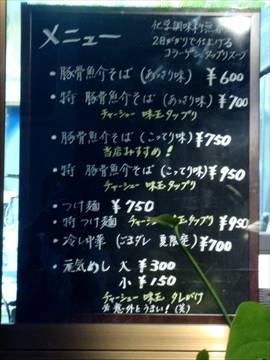 メニュー
化学調味料無
2日がかりで仕上げる
コラーゲンタップリスープ
・豚骨魚介そば (あっさり味) ¥600
・特 豚骨魚介そば (あっさり味) ¥700
チャーシュー 味玉 タップリ
・豚骨魚介そば (こってり味) ¥750
当店おすすめ!
・特 豚骨魚介そば (こってり味) ¥950
チャーシュー 味玉 タップリ
・つけ麺 ¥750
・特つけ麺 チャーシュー 味玉タップリ ¥950
・冷し中華 (ごまダレ 夏限定) ¥700
・元気めし 大 ¥300
小 ¥150
チャーシュー 味玉 タレがけ
意外とうまい! (笑)